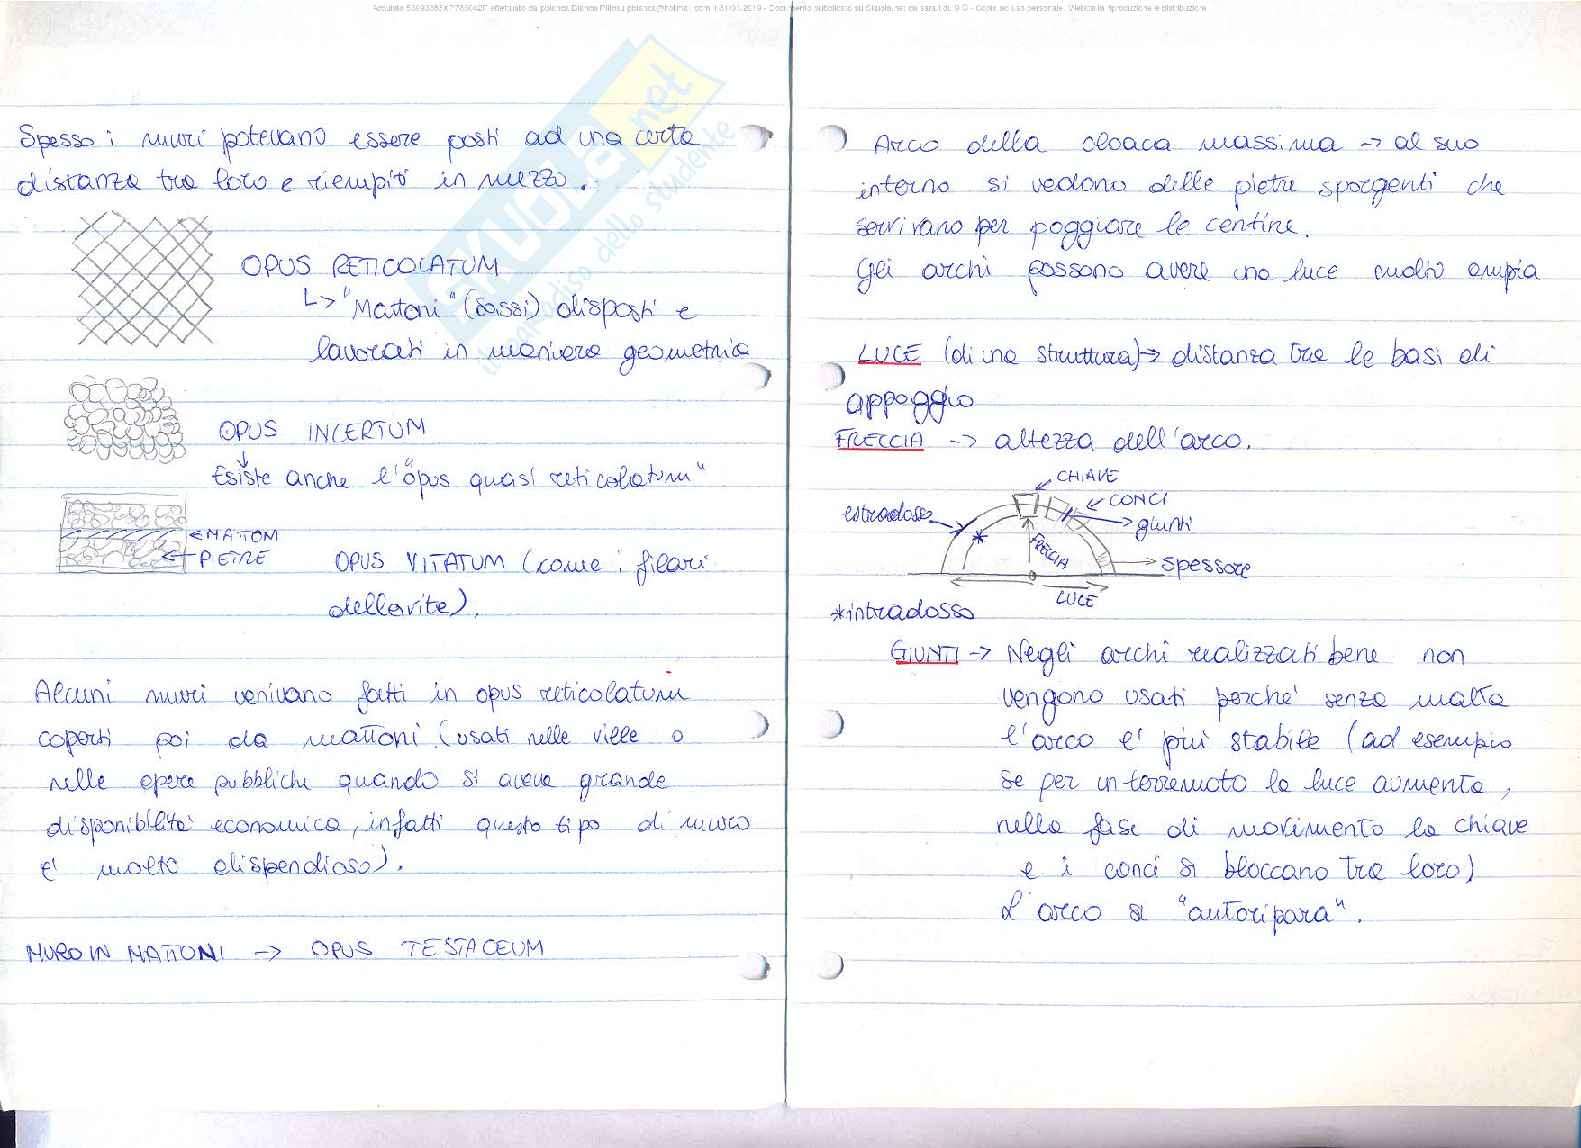 Spesso i muri potevano essere posti ad una certa
distanza tra loro e riempiti in mezzo.
OPUS RETICOLATUM
↳ "Mattoni" (sassi) disposti e
lavorati in maniera geometrica
OPUS INCERTUM
↓
Esiste anche l'"opus quasi reticolatum"
← MATTONI
← PIETRE
OPUS VITATUM (come i filari
della vite).
Alcuni muri venivano fatti in opus reticolatum
coperti poi da mattoni (usati nelle ville o
nelle opere pubbliche quando si aveva grande
disponibilità economica, infatti questo tipo di muro
e' molto dispendioso).
MURO IN MATTONI -> OPUS TESTACEUM
Arco della cloaca massima -> al suo
interno si vedono delle pietre sporgenti che
servivano per poggiare le centine.
Gli archi possono avere una luce molto ampia
LUCE (di una struttura) -> distanza tra le basi di
appoggio
FRECCIA -> altezza dell'arco.
CHIAVE
CONCI
estradosso
giunti
*
FRECCIA
spessore
LUCE
*intradosso
GIUNTI -> Negli archi realizzati bene non
vengono usati perche' senza malta
l'arco e' piu' stabile (ad esempio
se per un terremoto la luce aumenta,
nella fase di movimento la chiave
e i conci si bloccano tra loro)
L'arco si "autoripara".
SKUOLA.net
il paradiso dello studente